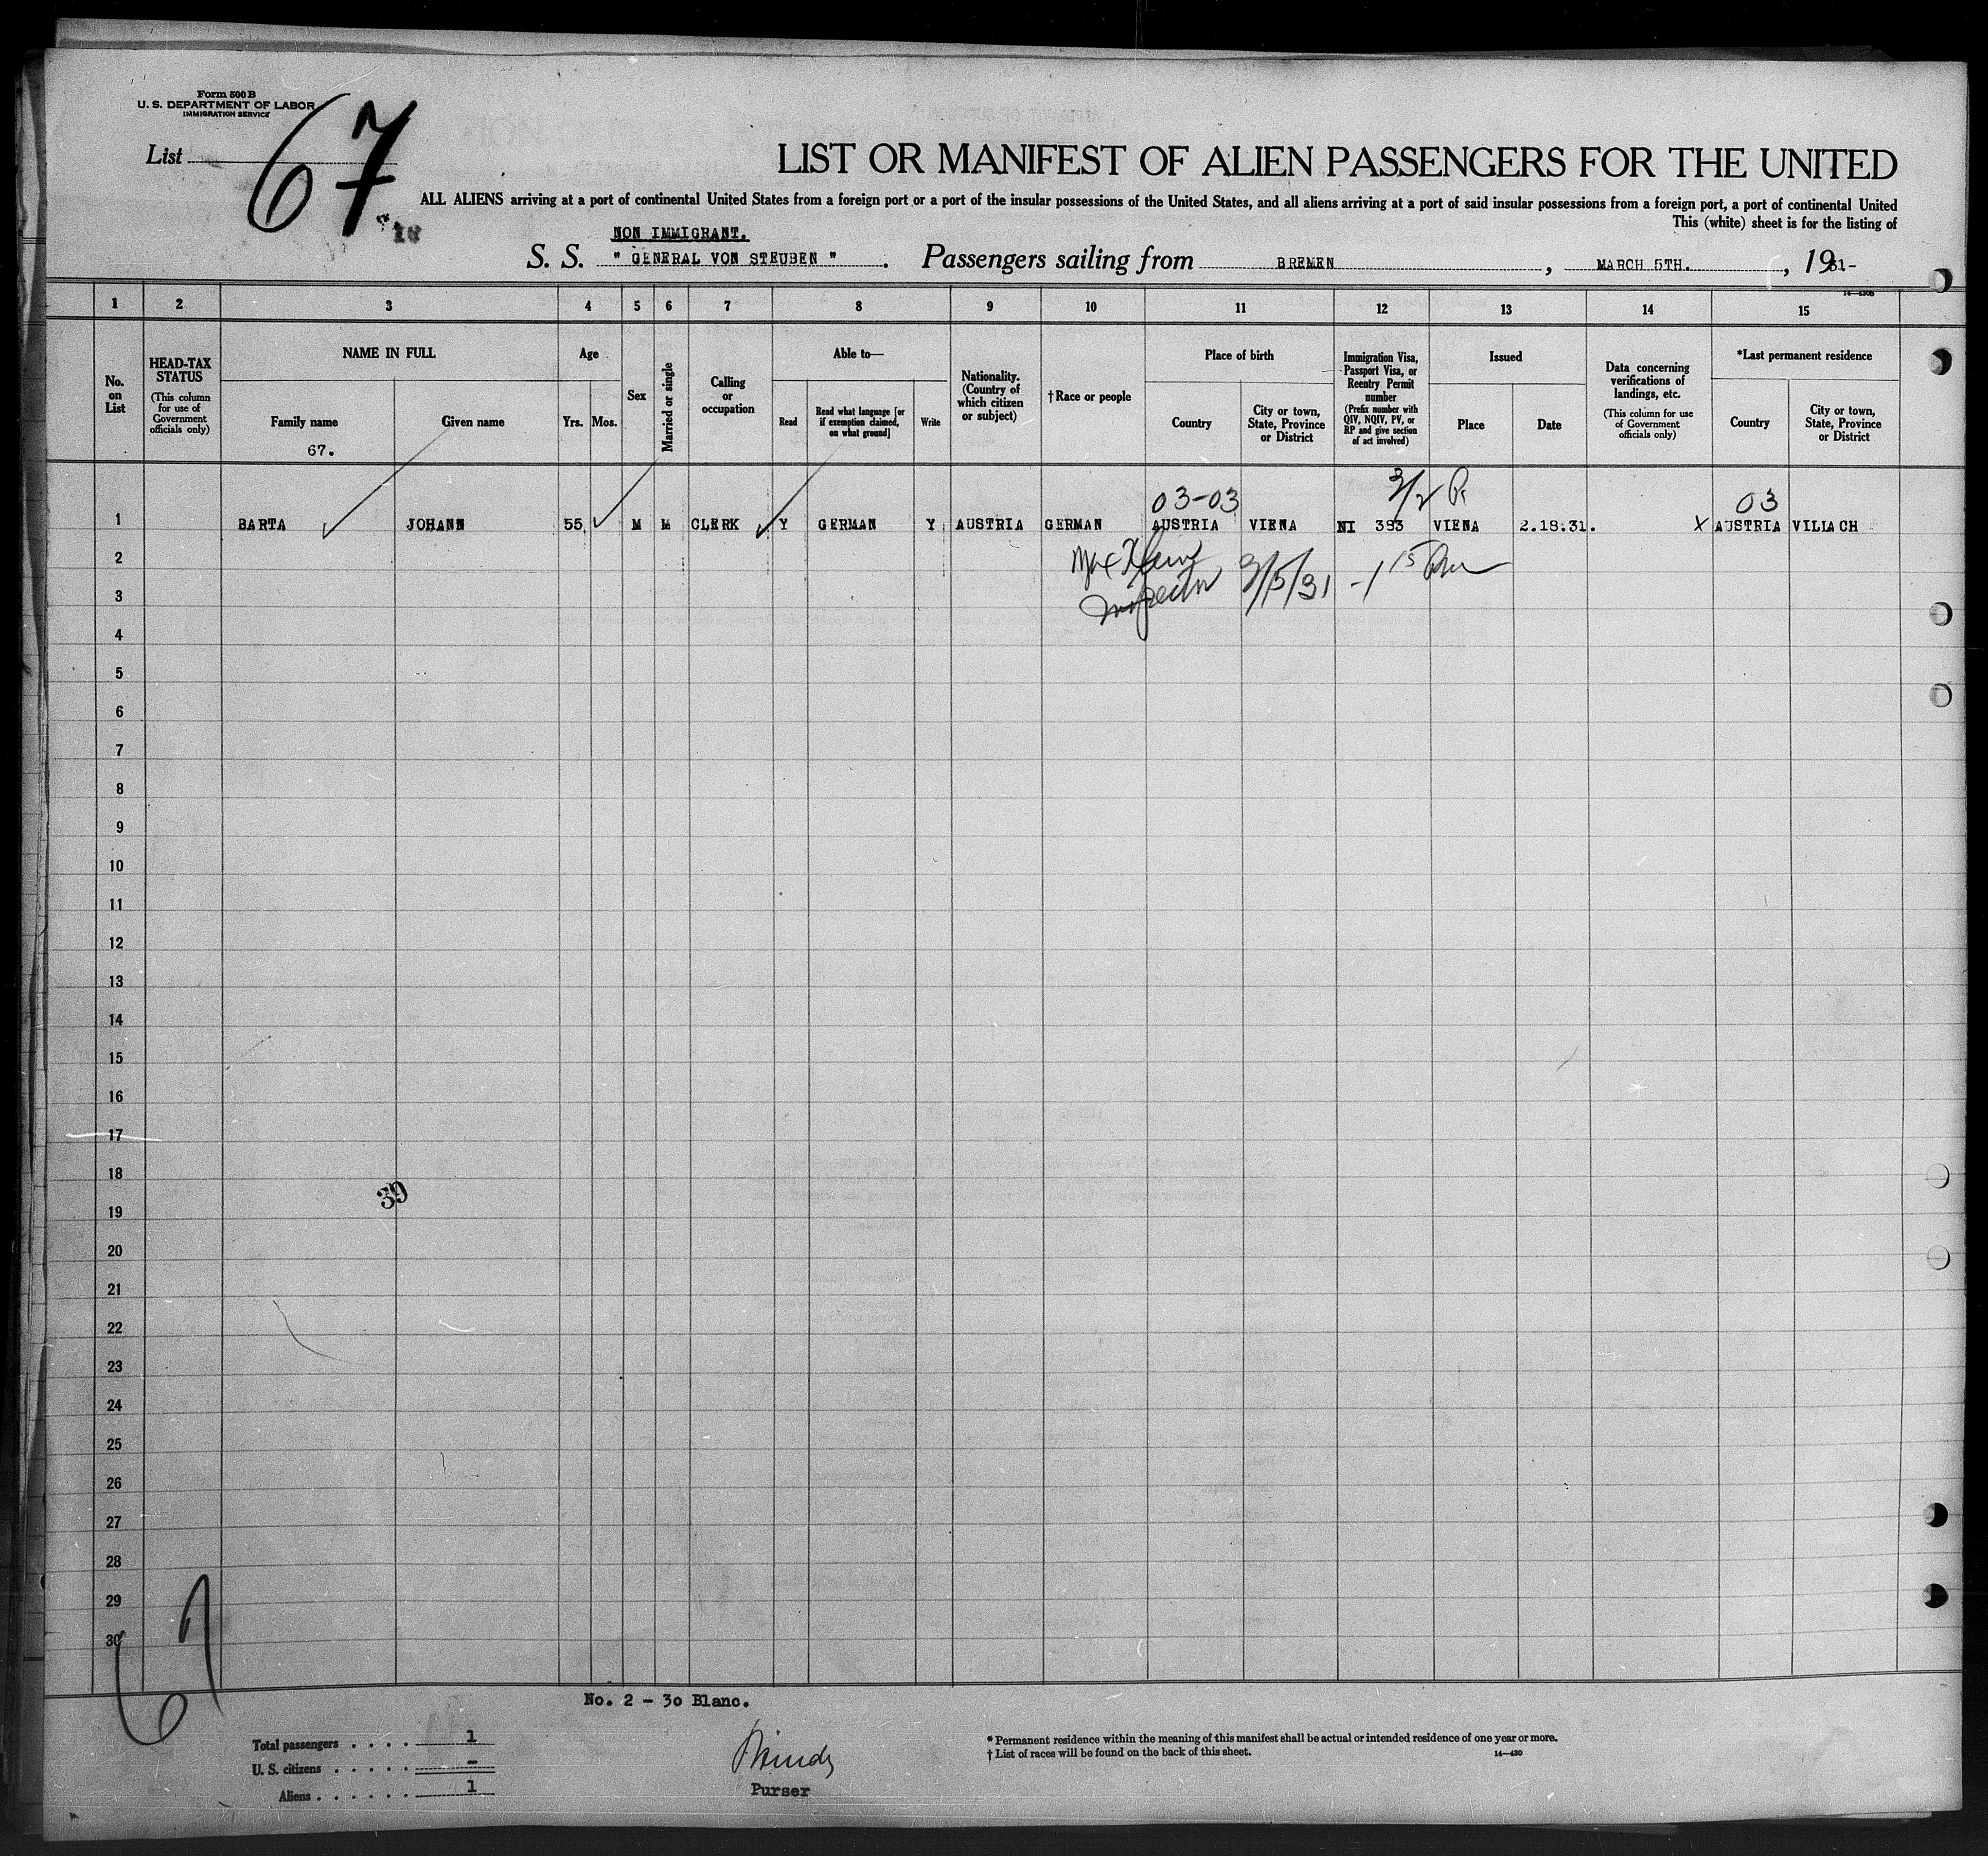 Form 500 B
U. S. DEPARTMENT OF LABOR
IMMIGRATION SERVICE
List
67
LIST OR MANIFEST OF ALIEN PASSENGERS FOR THE UNITED
ALL ALIENS arriving at a port of continental United States from a foreign port or a port of the insular possessions of the United States, and all aliens arriving at a port of said insular possessions from a foreign port, a port of continental United
This (white) sheet is for the listing of
NON IMMIGRANT.
S. S. " GENERAL VON STEUBEN " . Passengers sailing from BREMEN , MARCH 5TH. , 1931-
1 2 3 4 5 6 7 8 9 10 11 12 13 14 15
No. on List
HEAD-TAX STATUS (This column for use of Government officials only)
NAME IN FULL
Family name
67.
Given name
Age
Yrs. Mos.
Sex
Married or single
Calling or occupation
Able to—
Read
Read what language [or if exemption claimed, on what ground]
Write
Nationality. (Country of which citizen or subject)
†Race or people
Place of birth
Country
City or town, State, Province or District
Immigration Visa, Passport Visa, or Reentry Permit number (Prefix number with QIV, NQIV, PV, or RP and give section of act involved)
Issued
Place
Date
Data concerning verifications of landings, etc. (This column for use of Government officials only)
*Last permanent residence
Country
City or town, State, Province or District
03-03 3/2 03
1 BARTA JOHANN 55 M M CLERK Y GERMAN Y AUSTRIA GERMAN AUSTRIA VIENA NI 383 VIENA 2.18.31. X AUSTRIA VILLACH
2
Inspector
3
4
5
6
7
8
9
10
11
12
13
14
15
16
17
18
39
19
20
21
22
23
24
25
26
27
28
29
30
67
No. 2 - 30 Blanc.
Total passengers . . . . 1
U. S. citizens . . . . . -
Aliens . . . . . . 1
Purser
* Permanent residence within the meaning of this manifest shall be actual or intended residence of one year or more.
† List of races will be found on the back of this sheet.
14—430